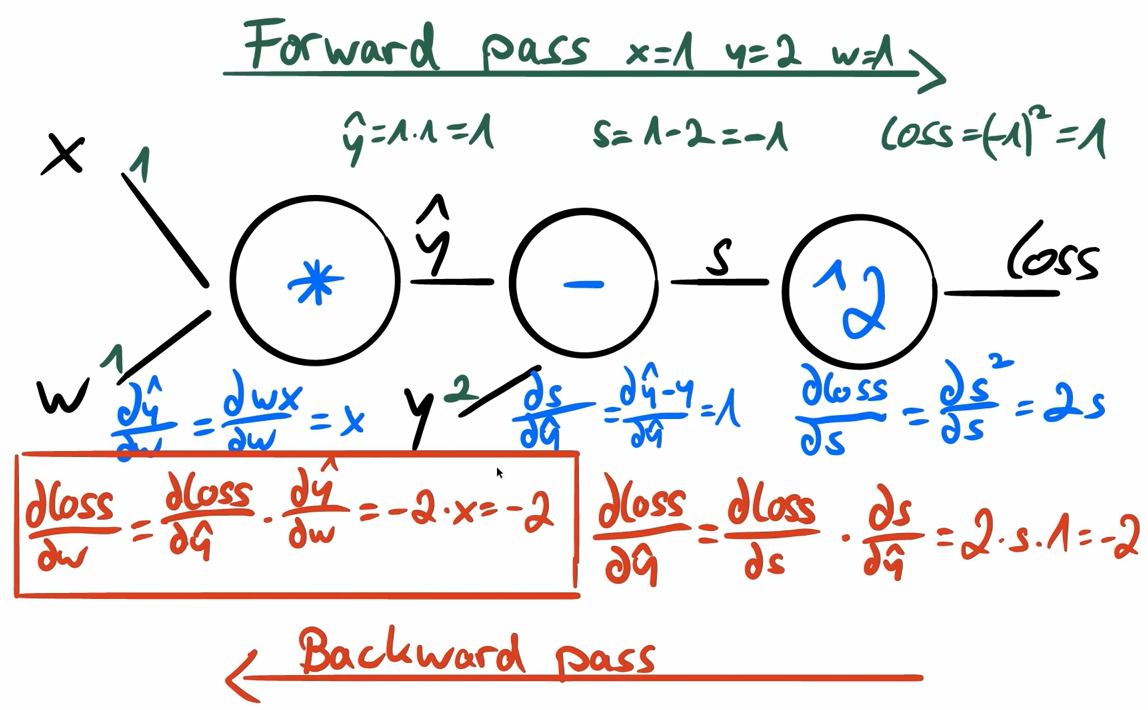 Forward pass x=1 y=2 w=1
ŷ=1·1=1 s=1-2=-1 loss=(-1)²=1
x 1
* ŷ - s ^2 loss
w 1 y 2
∂ŷ/∂w = ∂wx/∂w = x ∂s/∂ŷ = ∂ŷ-y/∂ŷ = 1 ∂loss/∂s = ∂s²/∂s = 2s
∂loss/∂w = ∂loss/∂ŷ · ∂ŷ/∂w = -2·x = -2 ∂loss/∂ŷ = ∂loss/∂s · ∂s/∂ŷ = 2·s·1 = -2
Backward pass